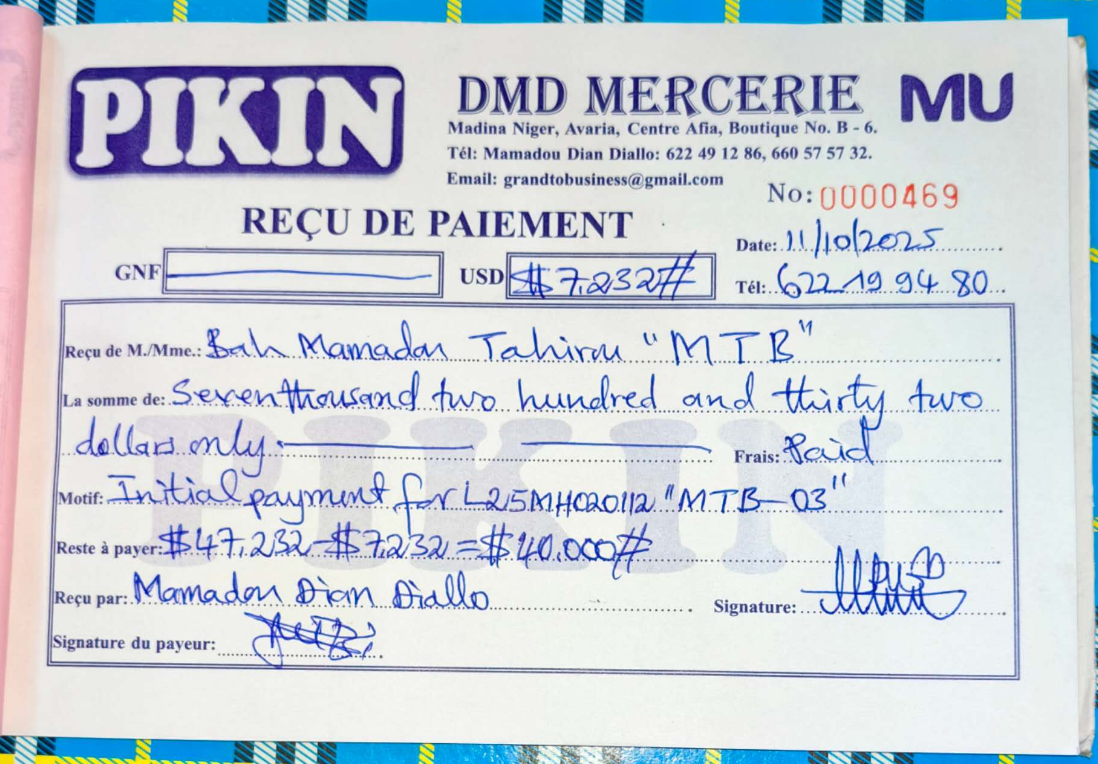 PIKIN
DMD MERCERIE
MU
Madina Niger, Avaria, Centre Afia, Boutique No. B - 6.
Tél: Mamadou Dian Diallo: 622 49 12 86, 660 57 57 32.
Email: grandtobusiness@gmail.com
No: 0000469
REÇU DE PAIEMENT
Date: 11/10/2025
GNF
USD $7.232#
Tél: 622 19 94 80
Reçu de M./Mme.: Bah Mamadou Tahirou "MTB"
La somme de: Seven thousand two hundred and thirty two
dollars only. Frais: Paid
Motif: Initial payment for L25MH020112 "MTB-03"
Reste à payer: $47,232-$7,232=$40.000#
Reçu par: Mamadou Dian Diallo Signature:
Signature du payeur:
PIKIN